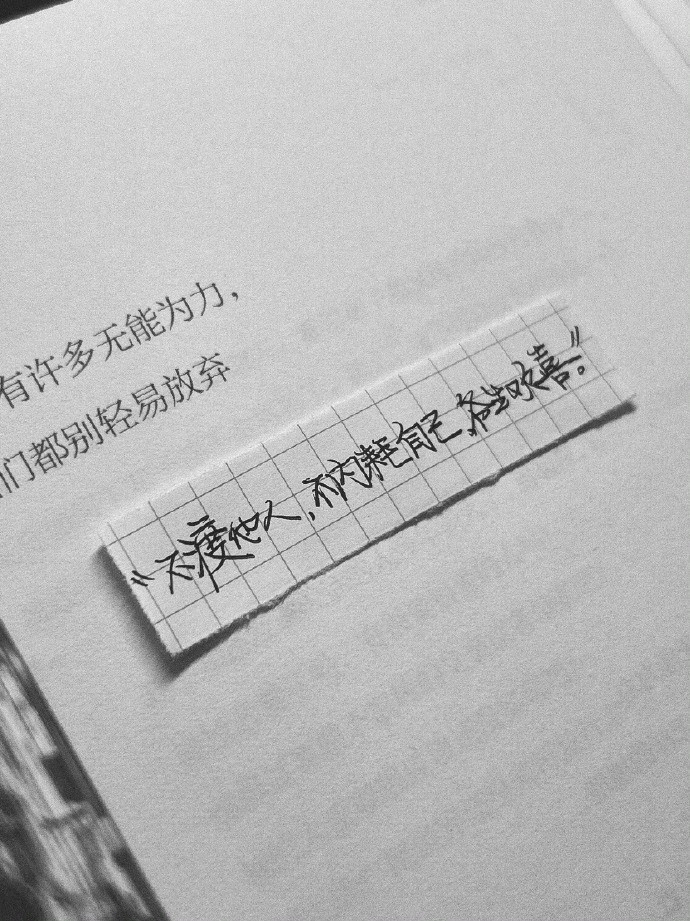 有许多无能为力，
们都别轻易放弃
“不度他人，不内耗自己，各生欢喜。”